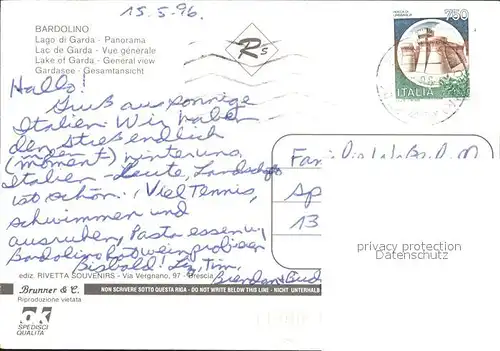 15.5.96.
BARDOLINO
Lago di Garda - Panorama
Lac de Garda - Vue générale
Lake of Garda - General view
Gardasee - Gesamtansicht
Rs
750
ITALIA
Hallo!
Gruß aus sonnige
Italien. Wir haben
den Streß endlich
(moment) hinter uns,
Italien - Leute, Landschaft
ist schön. Viel Tennis,
schwimmen und
ausruhen, Pasta essen u,
Bardolino Rotwein probieren
Bisbald! Tim,
Brendan
Fam.
Sp
13
privacy protection
Datenschutz
ediz. RIVETTA SOUVENIRS - Via Vergnano, 97 - Brescia
Brunner & C.
Riproduzione vietata
NON SCRIVERE SOTTO QUESTA RIGA - DO NOT WRITE BELOW THIS LINE - NICHT UNTERHALB
OK
SPEDISCI
QUALITÀ